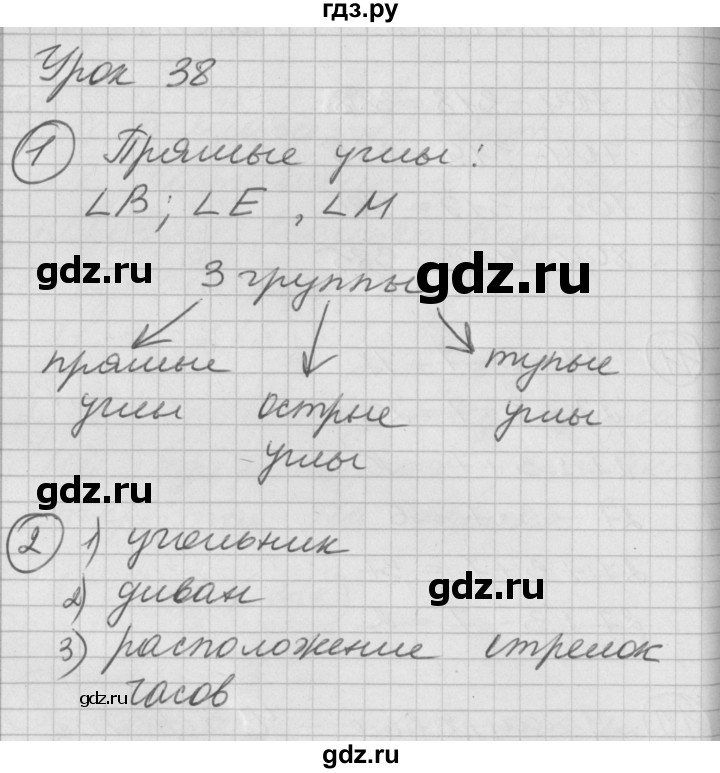 гдз.ру
Урок 38
1 Прямые углы:
∠B; ∠E, ∠M
gdz.ru
3 группы
gdz.ru
прямые углы
острые углы
тупые углы
gdz.ru
2 1) угольник
2) диван
gdz.ru
3) расположение стрелок
gdz.ru
часов
gdz.ru